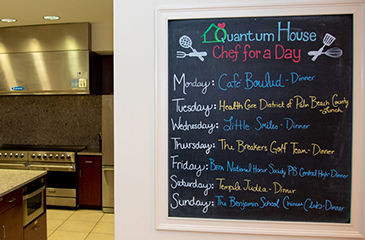 Quantum House
Chef for a Day
Monday: Cafe Boulud - Dinner
Tuesday: Health Care District of Palm Beach County
- Lunch
Wednesday: Little Smiles - Dinner
Thursday: The Breakers Golf Team - Dinner
Friday: Beta National Honor Society PB Central High - Dinner
Saturday: Temple Judea - Dinner
Sunday: The Benjamin School Club - Dinner